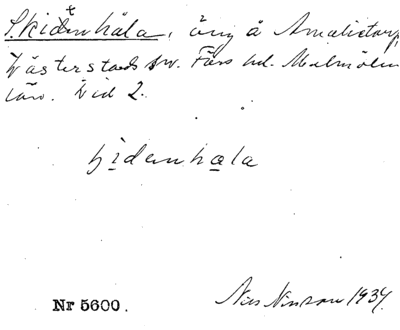 Skidenhåla, äng å Amalietorp,
Västerstads sn. Färs hd. Malmöhus
län. Vid 2.
hidenhala
Nr 5600.
Nils Nilsson 1934.